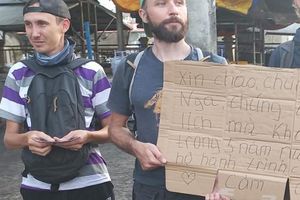 xin chào, chú
Nga chúng
lịch mà kh
trong 3 năm
hộ hành trình
cảm